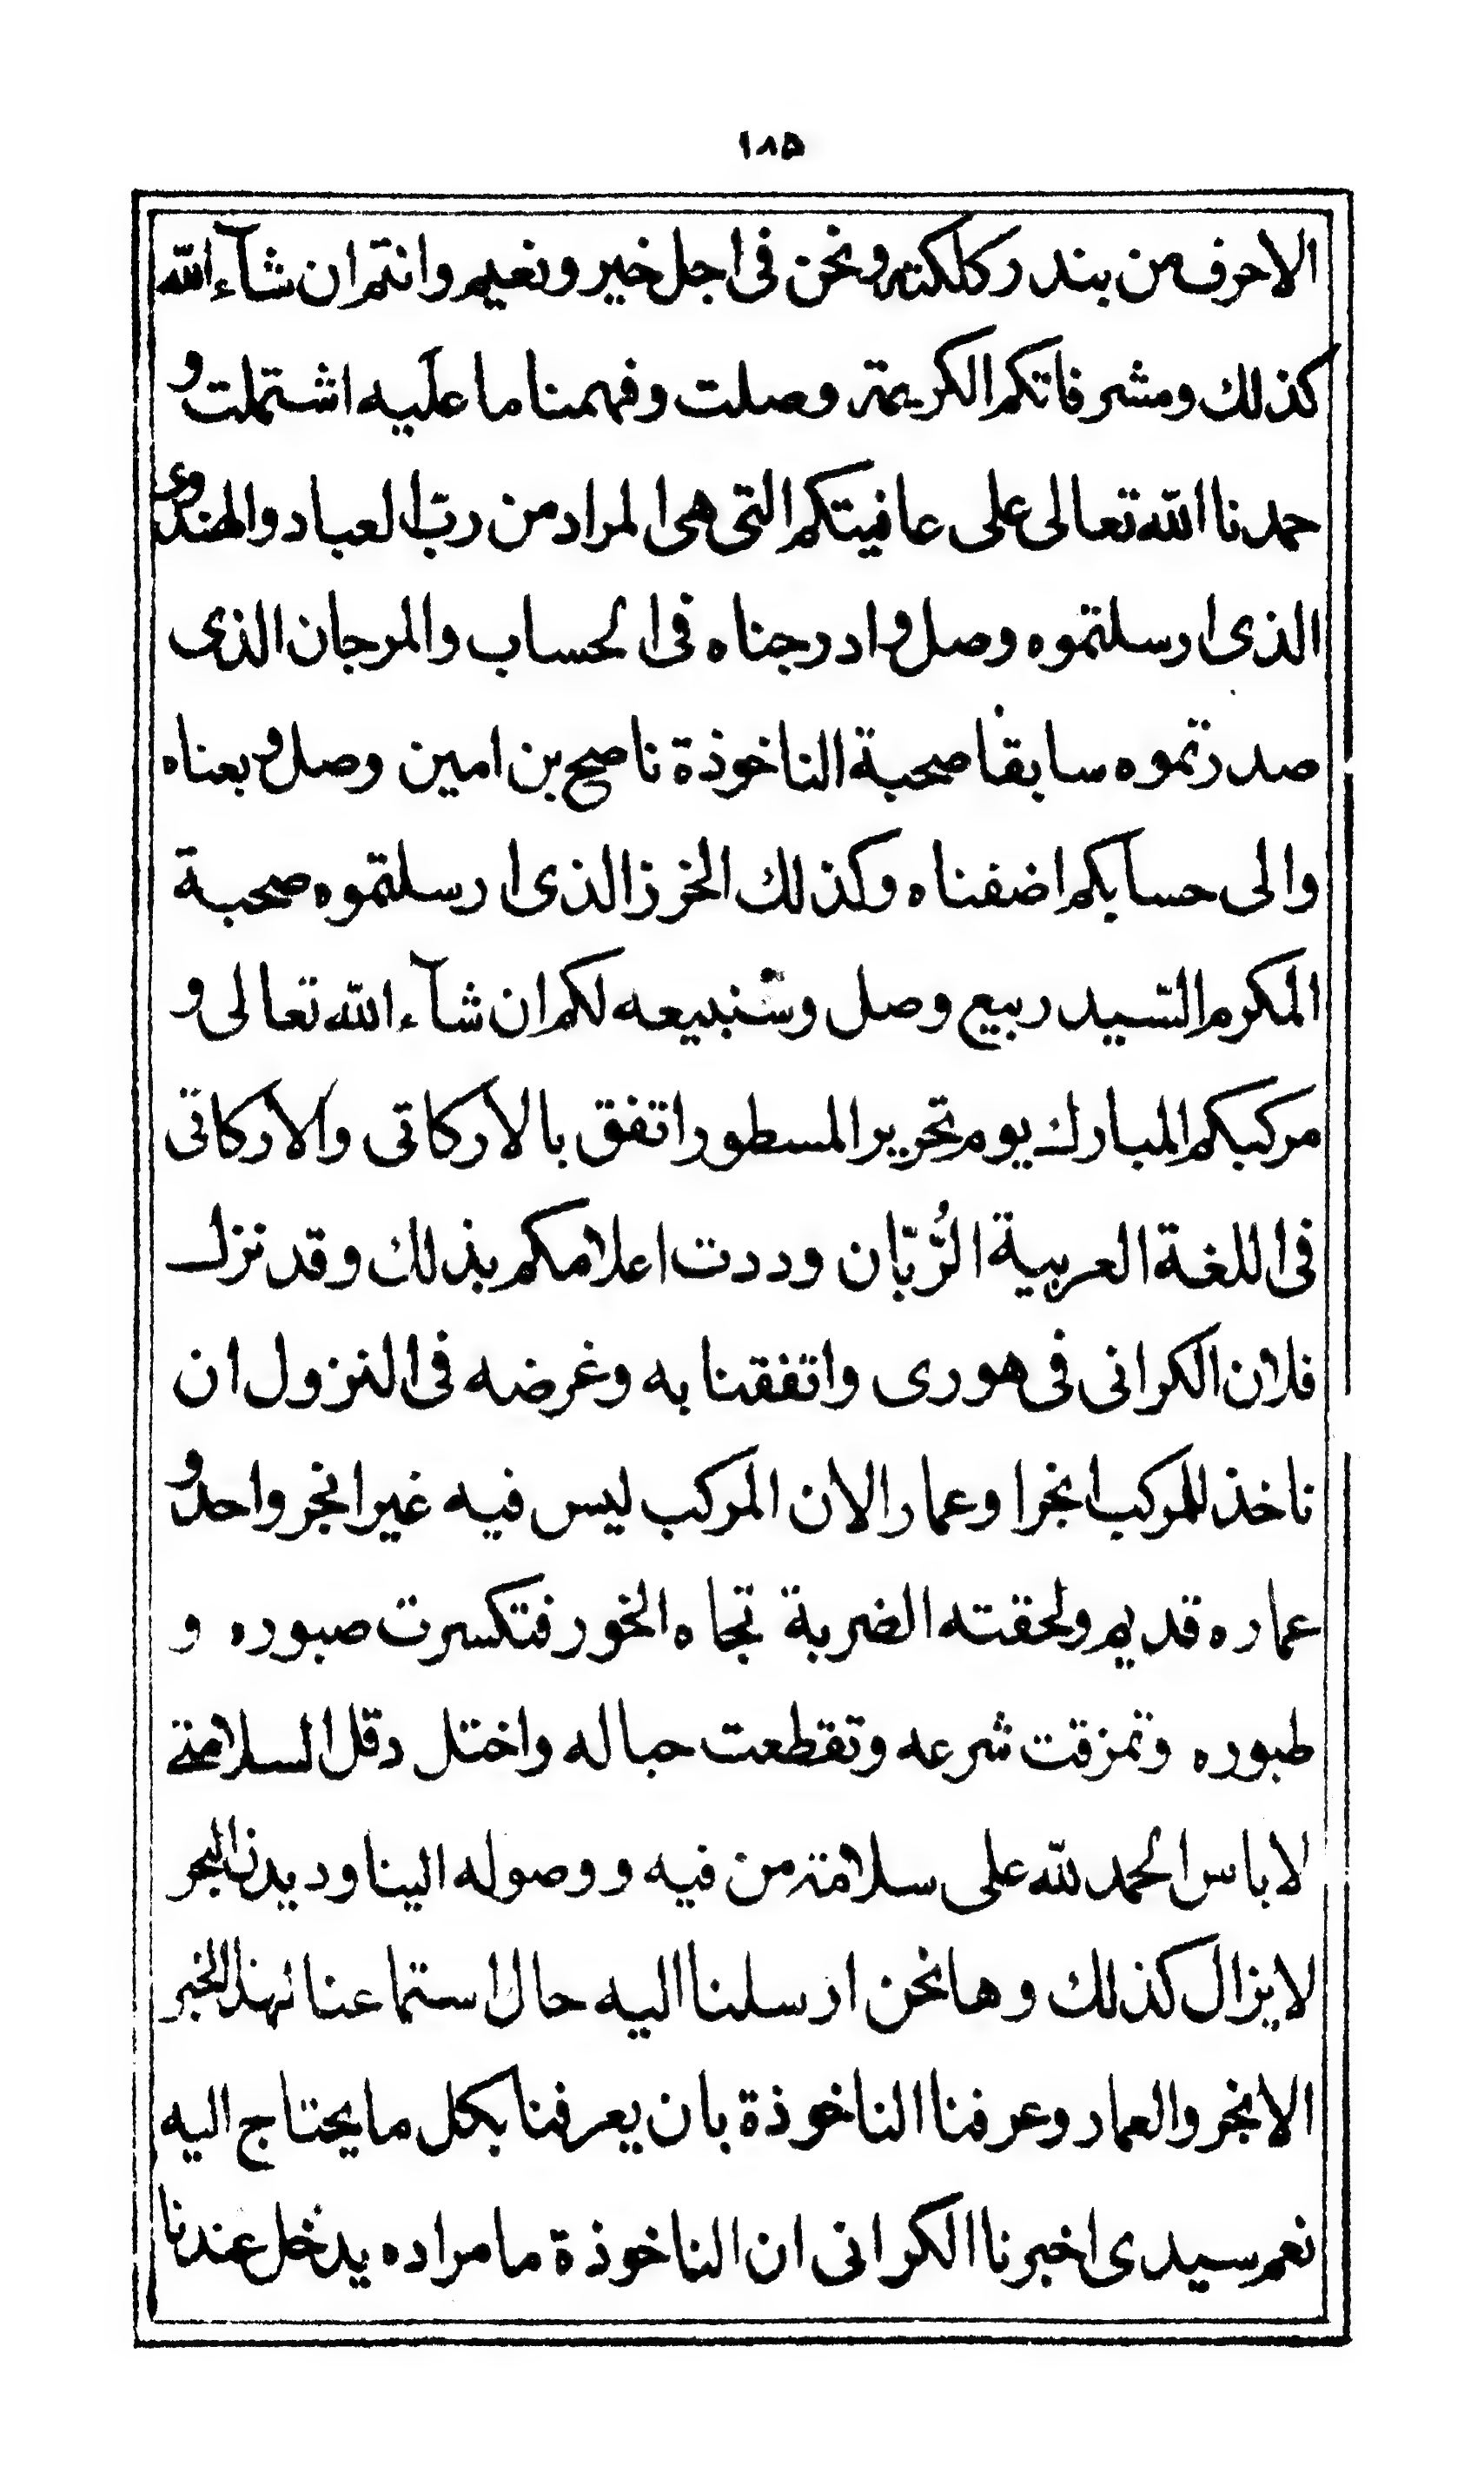 ١٨٥
الاحرف من بندر كلكته ونحن فى اجل خير ونعيم وانتم ان شآء الله
كذلك ومشرفاتكم الكريمة وصلت وفهمنا ما عليه اشتملت و
حمدنا الله تعالى على عافيتكم التى هى المراد من رب العباد والهندوى
الذى ارسلتموه وصل وادرجناه فى الحساب والمرجان الذى
صدرتموه سابقا صحبة الناخوذة ناصح بن امين وصل وبعناه
والى حسابكم اضفناه وكذلك الخرز الذى ارسلتموه صحبة
المكرم السّيد ربيع وصل وسنبيعه لكم ان شآء الله تعالى و
مركبكم المبارك يوم تحرير المسطور اتفق بالاركاتى والاركاتى
فى اللغة العربية الرُّبّان وددت اعلامكم بذلك وقد نزل
فلان الكرانى فى هورى واتفقنا به وغرضه فى النزول ان
ناخذ للمركب انجرا وعمار الان المركب ليس فيه غير انجر واحد و
عماره قديم ولحقته الضربة تجاه الخور فتكسرت صبوره و
طبوره وتمزقت شرعه وتقطعت حباله واختل دقل السلامة
لا باس الحمد لله على سلامة من فيه ووصوله الينا وديدن البحر
لا يزال كذلك وها نحن ارسلنا اليه حال استماعنا لهذا الخبر
الانجر والعمار وعرفنا الناخوذة بان يعرفنا بكل ما يحتاج اليه
نعم سيدى اخبرنا الكرانى ان الناخوذة ما مراده يدخل عندنا